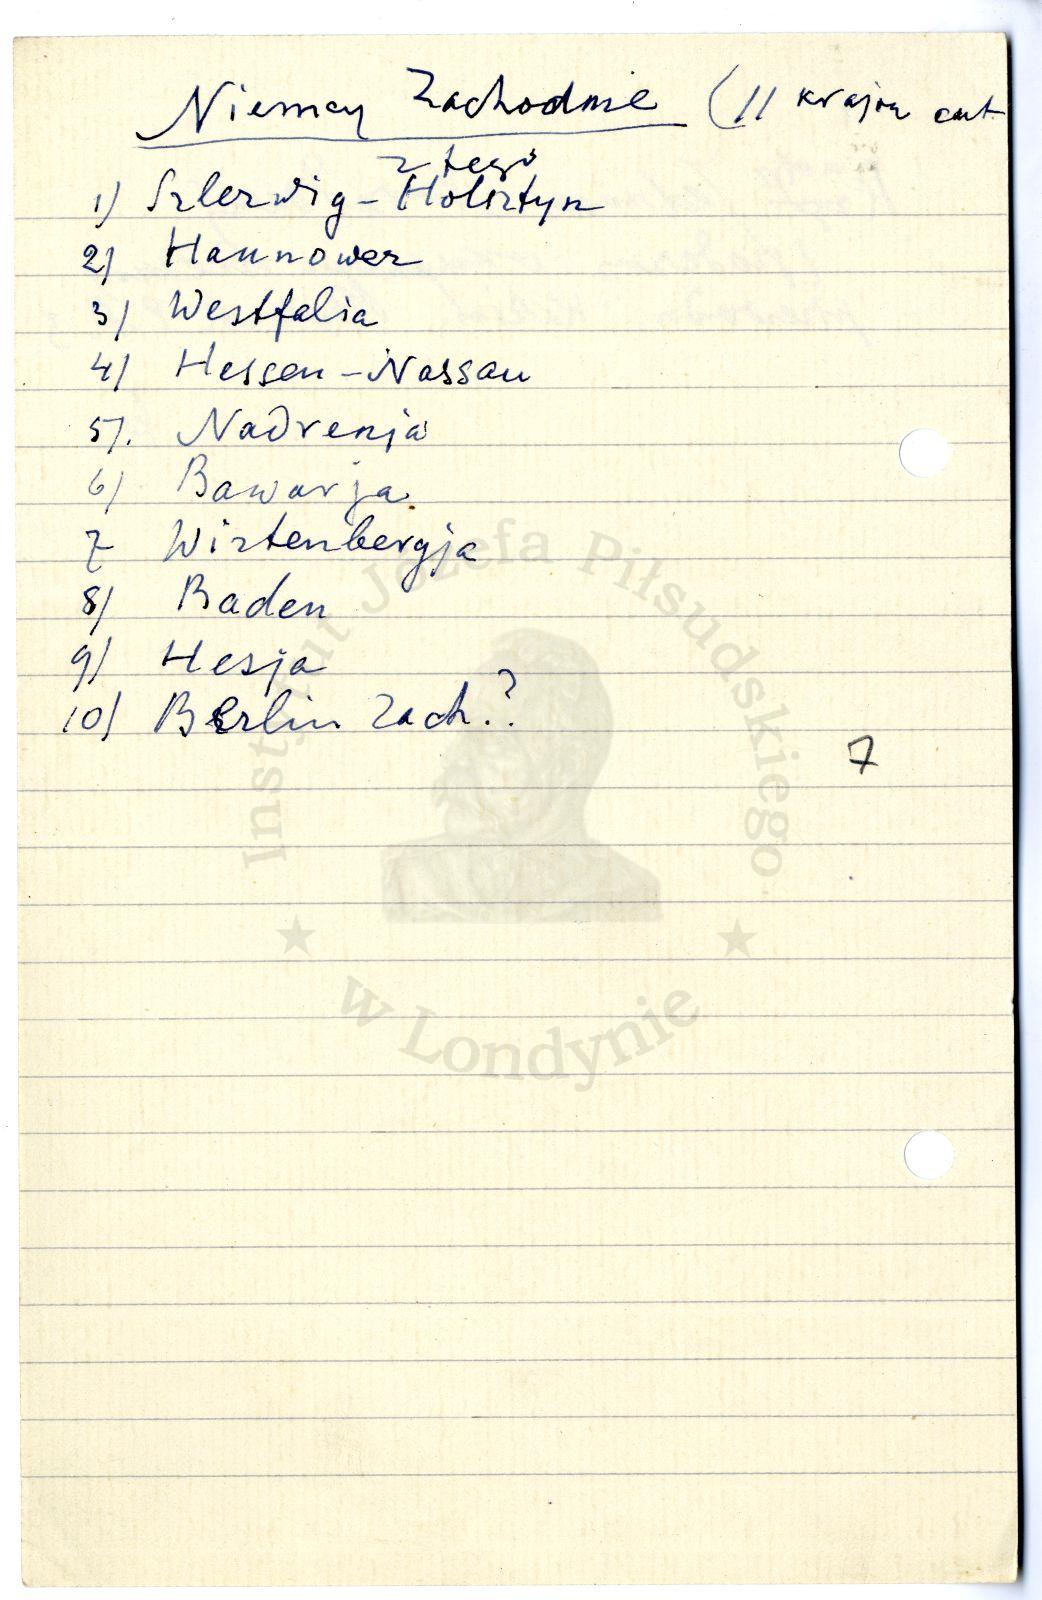 Niemcy Zachodnie (11 krajów aut
z tego
1) Szlezwig-Holsztyn
2) Hannower
3) Westfalia
4) Hessen-Nassau
5). Nadrenja
6) Bawarja
7 Wirtenbergja
8) Baden
9) Hesja
10) Berlin Zach.?
7
Instytut Józefa Piłsudskiego
w Londynie